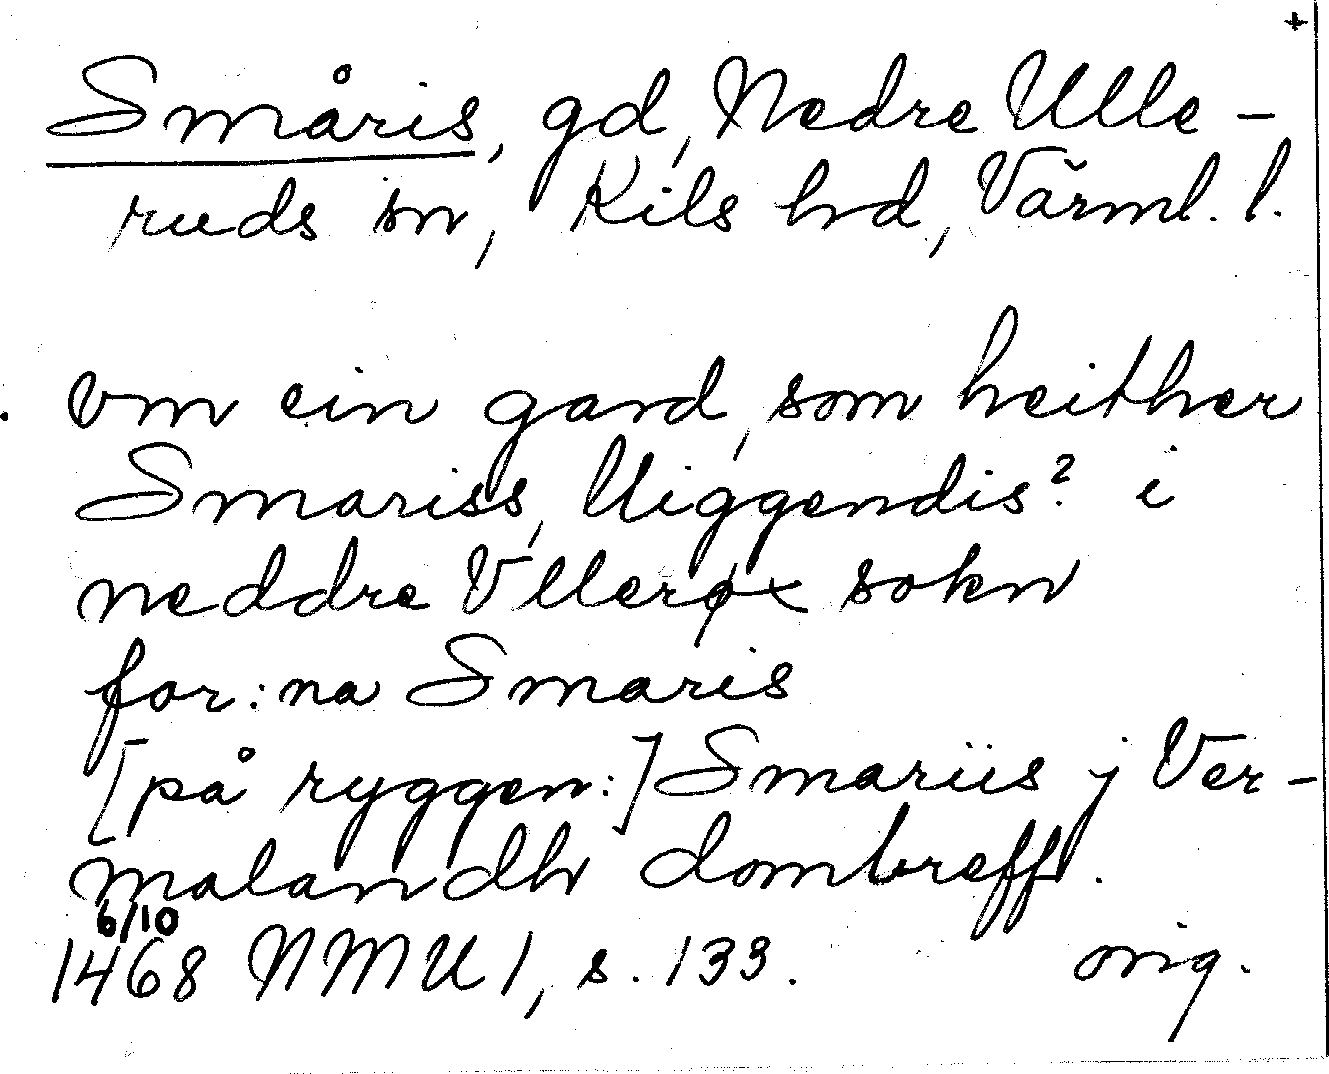 +
Småris, gd, Nedre Ulle-
ruds sn, Kils hd, Värml. l.
vm ein gard, som heither
Smariss, liiggendis? i
neddre Vllerøx sokn
for:na Smaris
[på ryggen:] Smariis j Ver-
malandh dombreff.
6/10
1468 NMU 1, s. 133. orig.